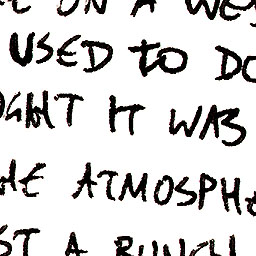 ON A WE
USED TO DO
GHT IT WAS
HE ATMOSPHE
ST A BUNCH